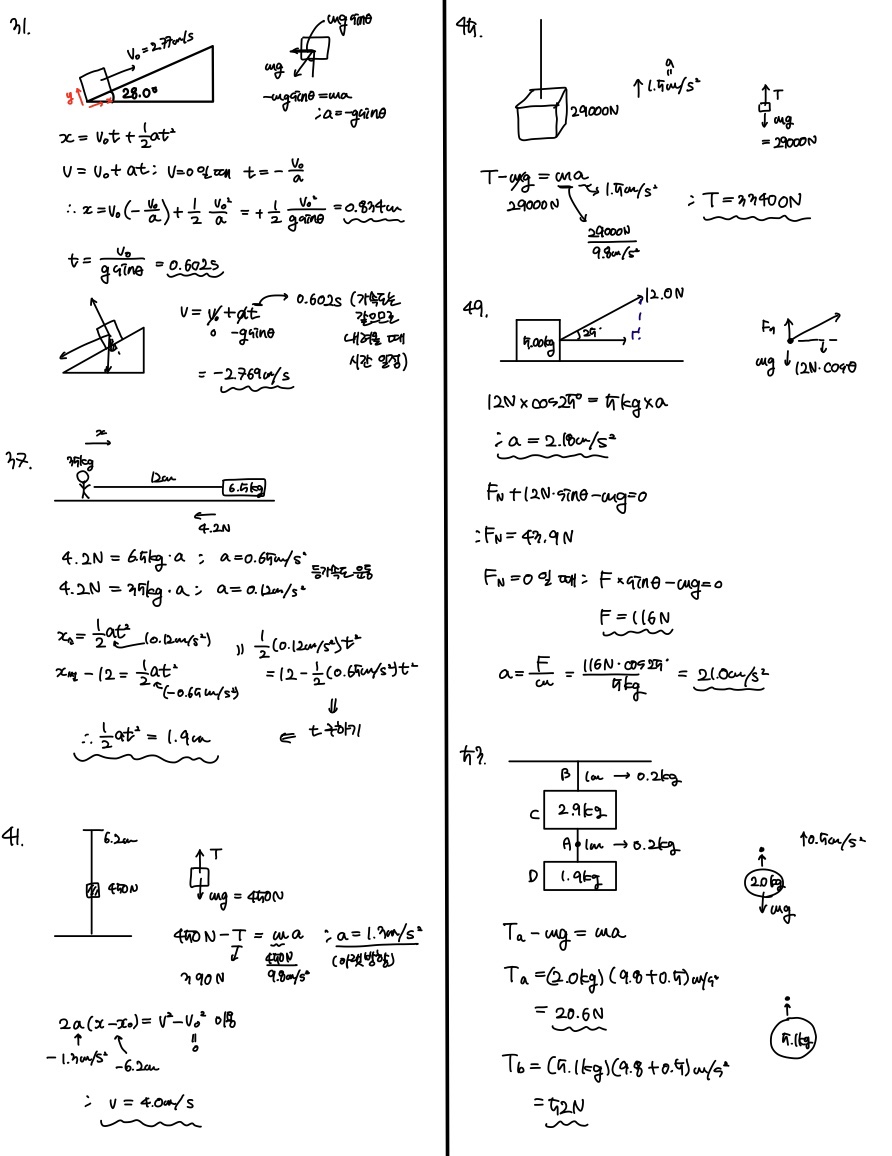 31.
V₀=2.77m/s
28.0°
y
mg sinθ
mg
-mg sinθ=ma
∴a=-g sinθ
x = V₀t + ½at²
V = V₀ + at ; V=0 일 때 t = -V₀/a
∴ x = V₀(-V₀/a) + ½ V₀²/a = +½ V₀²/(g sinθ) = 0.834m
t = V₀/(g sinθ) = 0.602s
V = V₀ + at → 0.602s (가속도는
0 -g sinθ 같으므로
내려올 때
시간 일정)
= -2.769m/s
37.
x
35kg
12m
6.5kg
4.2N
4.2N = 6.5kg·a ; a=0.65m/s²
4.2N = 35kg·a ; a=0.12m/s²
등가속도 운동
x₀ = ½at² (0.12m/s²)
x썰 - 12 = ½at² (-0.65m/s²)
〃 ½(0.12m/s²)t²
= 12 - ½(0.65m/s²)t²
⇓
∴ ½at² = 1.9m ⇐ t 구하기
41.
6.2m
450N
T
mg = 450N
450N - T = ma ∴ a = 1.3m/s²
390N 450N/9.8m/s² (아랫방향)
2a(x-x₀) = V² - V₀² 이용
-1.3m/s² -6.2m 0
∴ V = 4.0m/s
45.
29000N
a
〃
↑1.5m/s²
T
mg
= 29000N
T - mg = ma → 1.5m/s²
29000N
29000N/9.8m/s²
∴ T = 33400N
49.
12.0N
5.00kg
25°
Fₙ
mg
12N·cosθ
12N × cos25° = 5kg × a
∴ a = 2.18m/s²
F_N + 12N·sinθ - mg = 0
∴ F_N = 43.9N
F_N = 0 일 때 ; F × sinθ - mg = 0
F = 116N
a = F/m = 116N·cos25°/5kg = 21.0m/s²
53.
B 1m → 0.2kg
C 2.9kg
A 1m → 0.2kg
D 1.9kg
↑0.5m/s²
2.0kg
mg
Ta - mg = ma
Ta = (2.0kg)(9.8+0.5)m/s²
= 20.6N
5.1kg
Tb = (5.1kg)(9.8+0.5)m/s²
= 52N